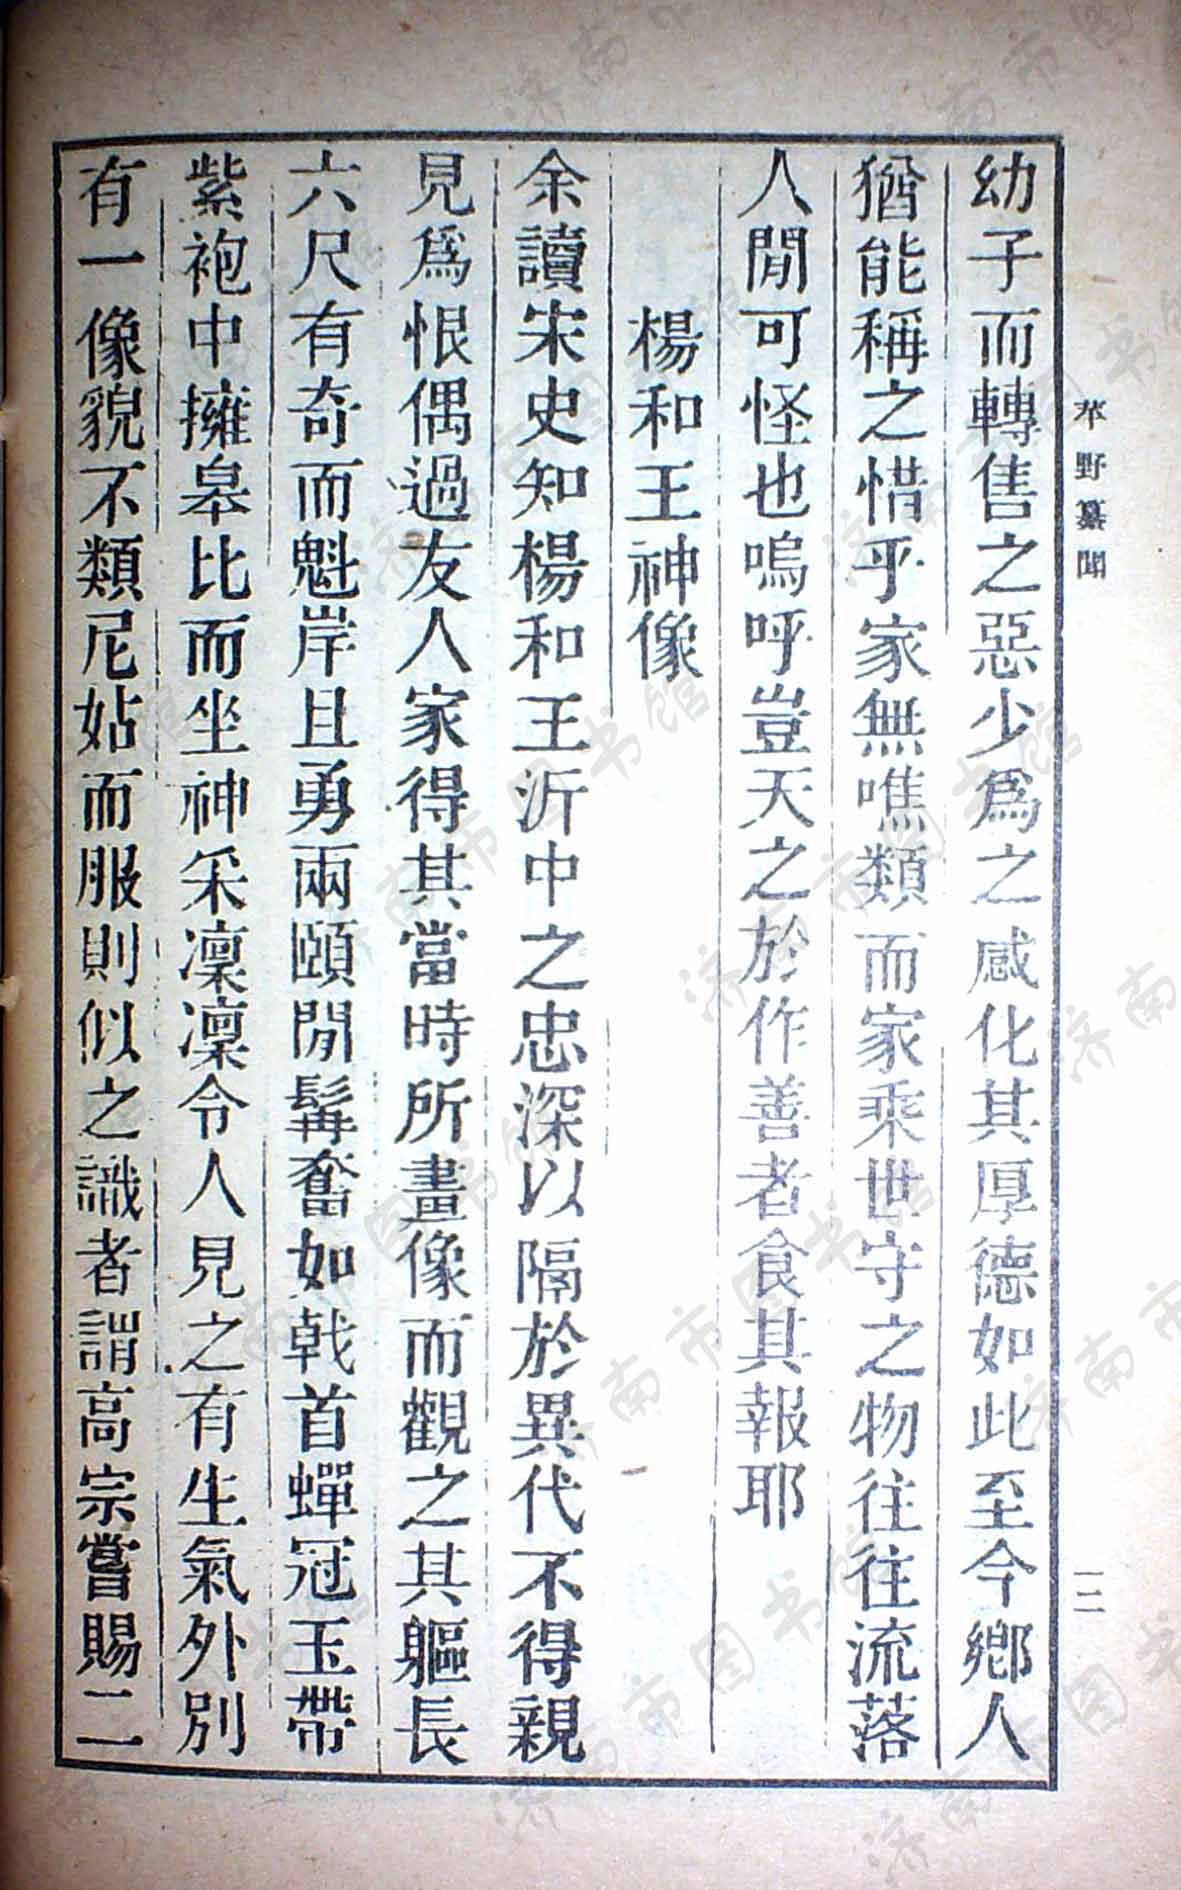 幼子而轉售之惡少爲之感化其厚德如此至今鄕人
猶能稱之惜乎家無噍類而家乘世守之物往往流落
人閒可怪也嗚呼豈天之於作善者食其報耶
楊和王神像
余讀宋史知楊和王沂中之忠深以隔於異代不得親
見爲恨偶過友人家得其當時所畫像而觀之其軀長
六尺有奇而魁岸且勇兩頤閒髯奮如戟首蟬冠玉帶
紫袍中擁皋比而坐神采凜凜令人見之有生氣外別
有一像貌不類尼姑而服則似之識者謂高宗嘗賜二
苹野纂聞
一二
济南市图书馆